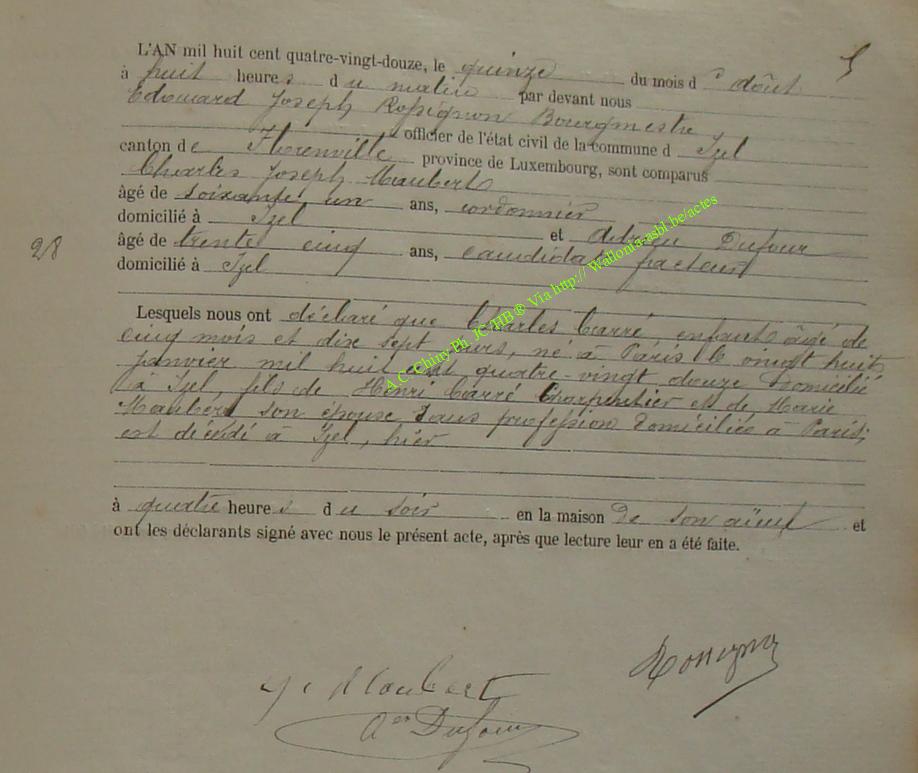 5
L'AN mil huit cent quatre-vingt-douze, le quinze du mois d'août
à huit heures du matin par devant nous
Edouard Joseph Rossignon Bourgmestre,
officier de l'état civil de la commune d Izel
canton de Florenville province de Luxembourg, sont comparus
Charles Joseph Maubert
âgé de soixante un ans, cordonnier
domicilié à Izel et Adrien Dufour
28
âgé de trente cinq ans, candidat facteur
domicilié à Izel
Lesquels nous ont déclaré que Charles Carré, enfant âgé de
cinq mois et dix sept jours, né à Paris le vingt huit
janvier mil huit cent quatre-vingt douze domicilié
à Izel fils de Henri Carré Charpentier et de Marie
Maubert son épouse sans profession domiciliée à Paris;
est décédé à Izel, hier
à quatre heures du soir en la maison de son aïeul et
ont les déclarants signé avec nous le présent acte, après que lecture leur en a été faite.
Rossignon
Maubert
Dufour
A C - Chiny Ph. JC HB ® Via http:// Wallonia-asbl.be/actes